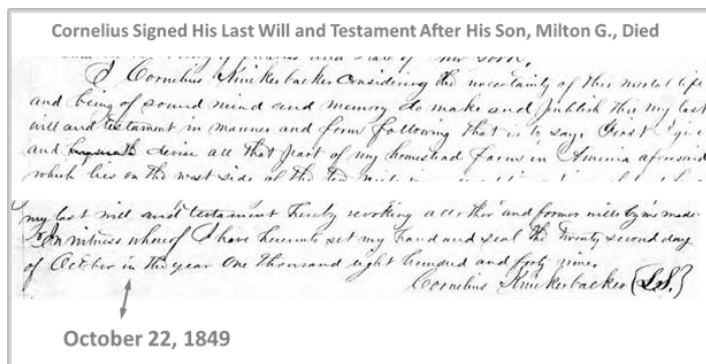 Cornelius Signed His Last Will and Testament After His Son, Milton G., Died
I Cornelius Knickerbacker Considering the uncertainty of this mortal life
and being of sound mind and memory do make and publish this my last
will and testament in manner and form following that is to say. First I give
and devise all that part of my homestead farm in Amenia aforesaid
which lies on the west side of the
my last will and testament hereby revoking all other and former wills by me made
In witness whereof I have hereunto set my hand and seal the Twenty second day
of October in the year One thousand eight hundred and forty nine
Cornelius Knickerbacker {L.S.}
October 22, 1849